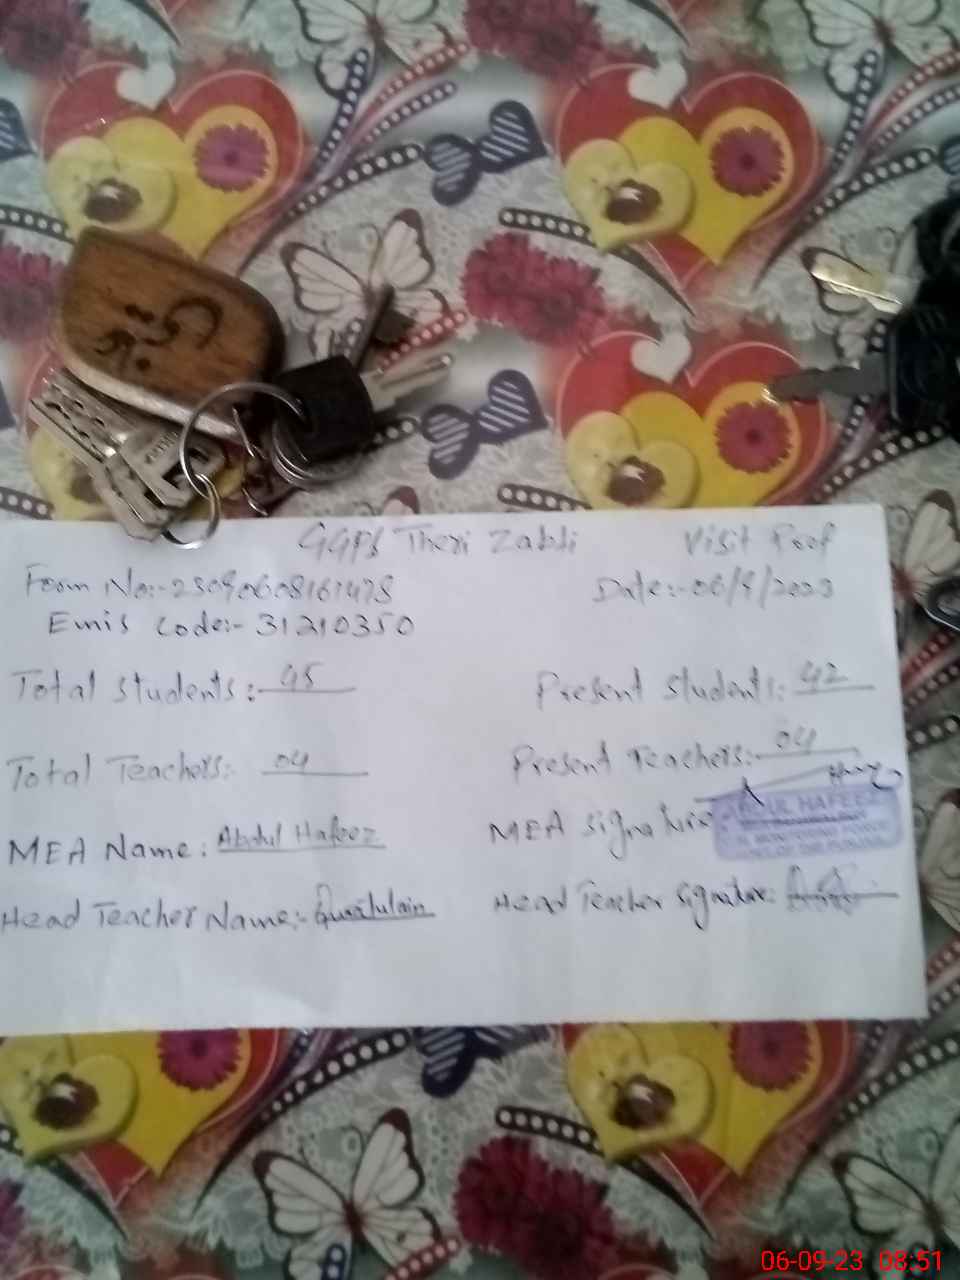 GGPS Theri Zabti Visit Poof
Form No:-23090608161478 Date:-06/9/2023
Emis Code:- 31210350
Total Students:- 45 Present Students:- 42
Total Teachers:- 04 Present Teachers:- 04
MEA Name: Abdul Hafeez MEA Signature
UL HAFEEZ
Head Teacher Name:- Quratulain Head Teacher Signature:
06-09-23 08:51